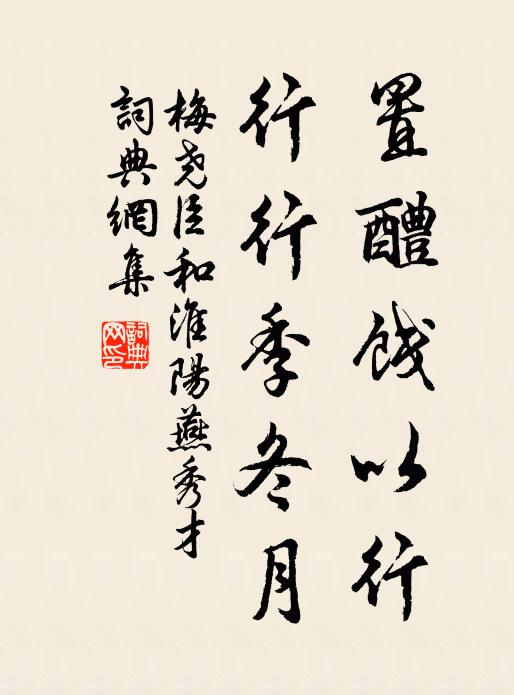 置醴餞以行
行行季冬月
梅堯臣和淮陽燕秀才
詞典網集
詞典網印